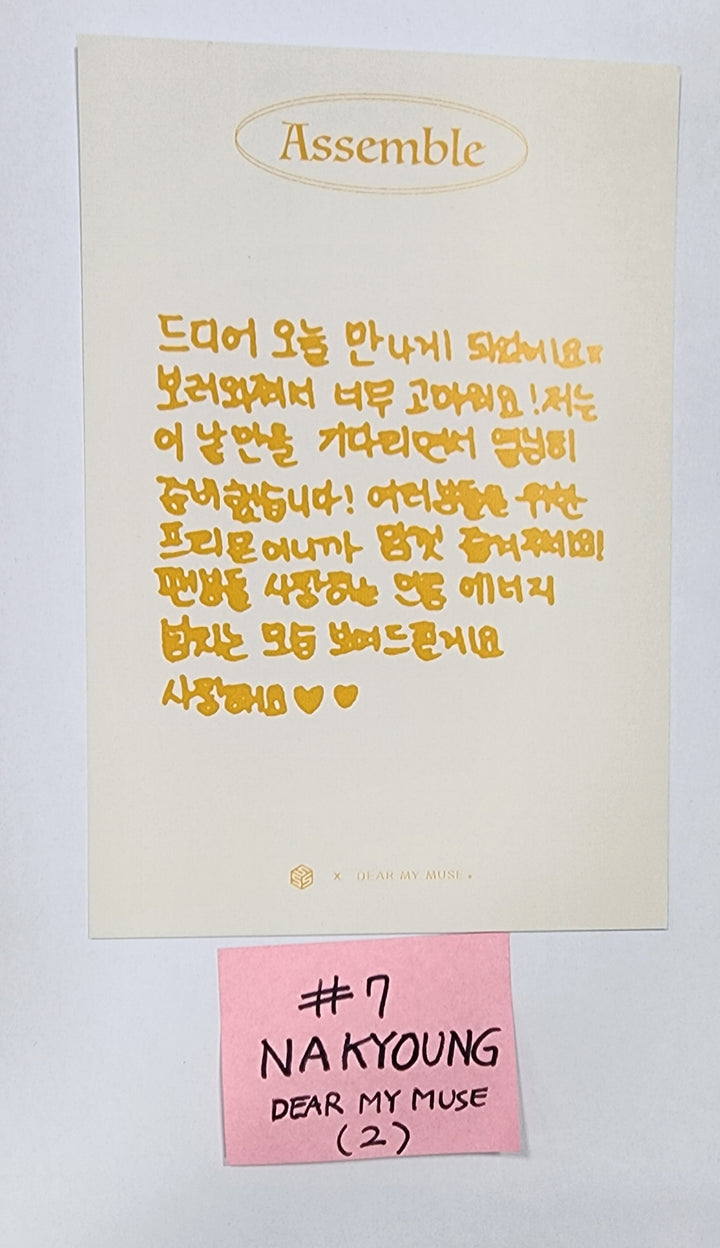 Assemble
드디어 오늘 만나게 되었어요
보러와줘서 너무 고마워요! 저는
이 날만을 기다리면서 열심히
준비했습니다! 여러분들을 위한
프리뮤어니까 맘껏 즐겨주세요!
팬분들 사랑하는 만큼 에너지
넘치는 모습 보여드릴게요
사랑해요 ♥ ♥
X DEAR MY MUSE.
#7
NAKYOUNG
DEAR MY MUSE
(2)